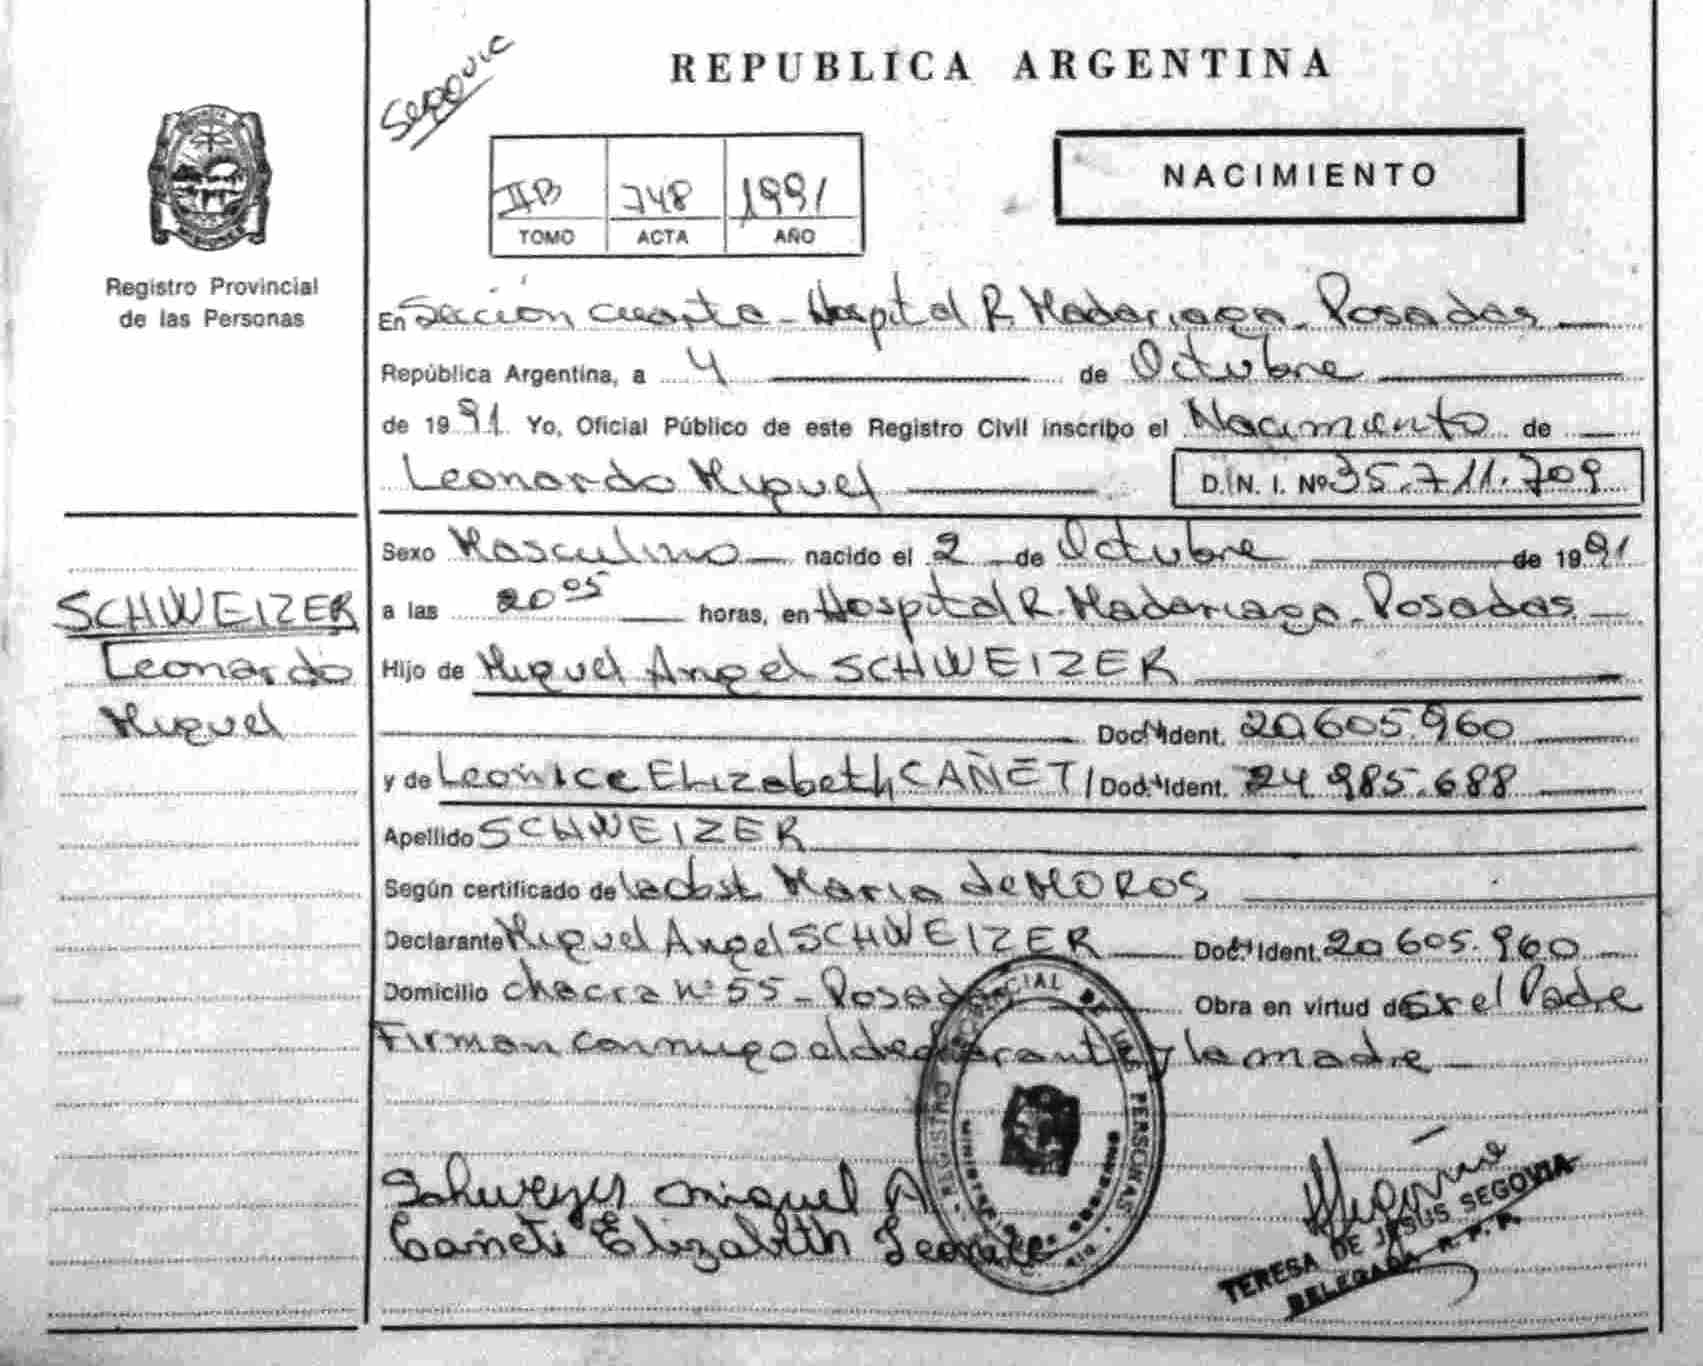 Segovia
REPUBLICA ARGENTINA
NACIMIENTO
IIB 748 1991
TOMO ACTA AÑO
Registro Provincial
de las Personas
En Sección cuarta - Hospital R. Madariaga - Posadas
República Argentina, a 4 de Octubre
de 1991 Yo, Oficial Público de este Registro Civil inscribo el Nacimiento de
Leonardo Miguel D. N. I. Nº 35.711.709
Sexo Masculino nacido el 2 de Octubre de 1991
a las 20 05 horas, en Hospital R. Madariaga - Posadas
Hijo de Miguel Angel SCHWEIZER
Doc. Ident. 20.605.960
y de Leonice Elizabeth CAÑETE Doc. Ident. 24.985.688
Apellido SCHWEIZER
Según certificado de la obst. Maria de MOROS
Declarante Miguel Angel SCHWEIZER Doc. Ident. 20.605.960
Domicilio chacra nº 55 - Posadas Obra en virtud de Ser el Padre
Firman conmigo el declarante y la madre
SCHWEIZER
Leonardo
Miguel
Schweizer Miguel A
Cañete Elizabeth Leonice
REGISTRO PROVINCIAL DE LAS PERSONAS
TERESA DE JESUS SEGOVIA
DELEGADA R. P. P.